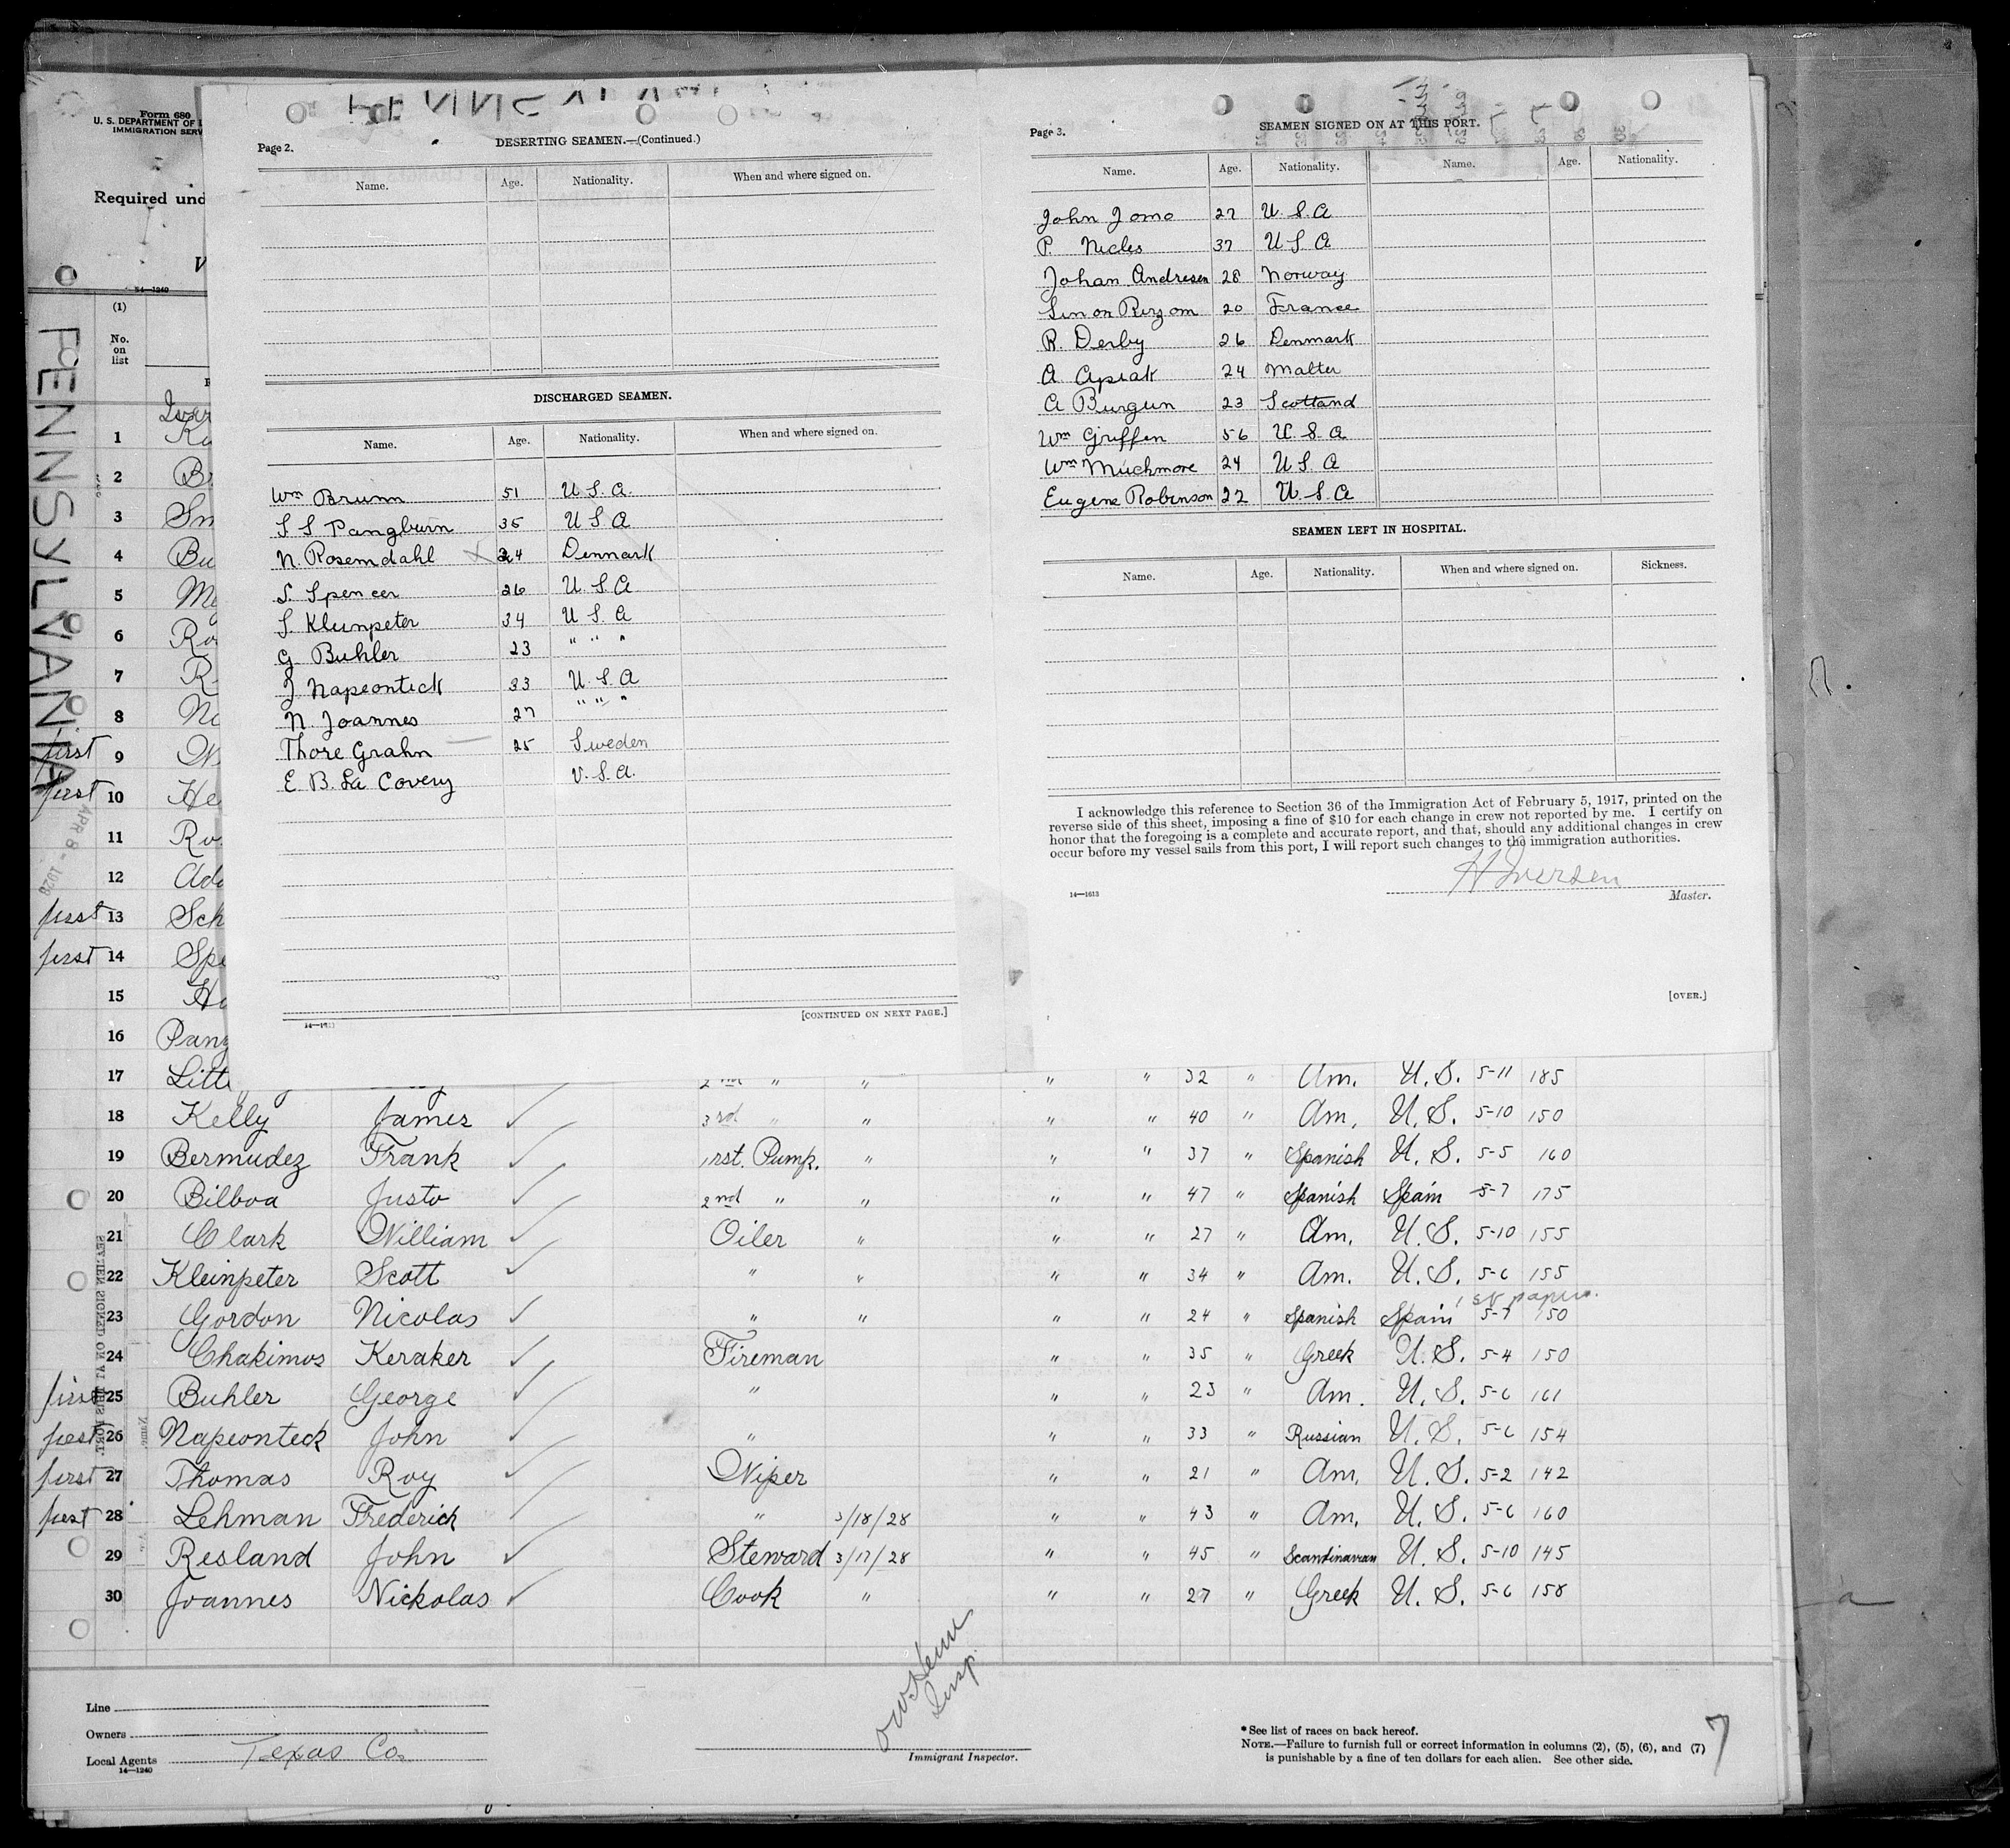 Form 680
U. S. DEPARTMENT OF
IMMIGRATION SERV
Required und
14—1240
(1)
No.
on
list
PENNSYLVANIA
APR 8 - 1928
Page 2.
DESERTING SEAMEN.—(Continued.)
Name. Age. Nationality. When and where signed on.
DISCHARGED SEAMEN.
Name. Age. Nationality. When and where signed on.
Wm Brunn 51 U.S.A.
S S Pangburn 35 U S A
N. Rosemdahl X 24 Denmark
S. Spencer 26 U.S.A
S. Kleinpeter 34 U S. A
G. Buhler 23 " " "
J Napeonteck 33 U.S.A
N. Joannes 27 " " "
Thore Grahn 25 Sweden
E. B. La Covery U.S.A.
14—1613
[CONTINUED ON NEXT PAGE.]
Page 3.
SEAMEN SIGNED ON AT THIS PORT.
Name. Age. Nationality. Name. Age. Nationality.
John Jomo 27 U.S.A
P. Nicles 37 U S A
Johan Andresen 28 Norway
Simon Rizom 20 France
R. Derby 26 Denmark
A Apiak 24 Malter
A Burgun 23 Scotland
Wm Griffen 56 U.S.A
Wm Muchmore 24 U S. A
Eugene Robinson 22 U.S.A
SEAMEN LEFT IN HOSPITAL.
Name. Age. Nationality. When and where signed on. Sickness.
I acknowledge this reference to Section 36 of the Immigration Act of February 5, 1917, printed on the
reverse side of this sheet, imposing a fine of $10 for each change in crew not reported by me. I certify on
honor that the foregoing is a complete and accurate report, and that, should any additional changes in crew
occur before my vessel sails from this port, I will report such changes to the immigration authorities.
H Iversen
14—1613
Master.
[OVER.]
1
2
3
4
5
6
7
8
first 9
first 10
11
12
first 13
first 14
15
16 Pang
17 Litt 2nd " " " " 32 " Am. U.S. 5-11 185
18 Kelly James 3rd " " " " 40 " Am. U.S. 5-10 150
19 Bermudez Frank 1rst. Pump. " " " 37 " Spanish U.S. 5-5 160
20 Bilboa Justo 2nd " " " " 47 " Spanish Spain 5-7 175
21 Clark William Oiler " " " 27 " Am. U.S. 5-10 155
22 Kleinpeter Scott " " " " 34 " Am. U.S. 5-6 155
1st papers.
23 Gordon Nicolas " " " " 24 " Spanish Spain 5-7 150
24 Chakimos Keraker Fireman " " 35 " Greek U.S. 5-4 150
first 25 Buhler George " " " 23 " Am. U.S. 5-6 161
first 26 Napeonteck John " " " 33 " Russian U.S. 5-6 154
first 27 Thomas Roy Wiper " " 21 " Am. U.S. 5-2 142
first 28 Lehman Frederick " 3/18/28 " " 43 " Am. U.S. 5-6 160
29 Resland John Steward 3/17/28 " " 45 " Scandinavian U.S. 5-10 145
30 Joannes Nickolas Cook " " " 27 " Greek U.S. 5-6 158
Line
Owners
Local Agents Texas Co.
14—1240
Insp.
Immigrant Inspector.
*See list of races on back hereof.
NOTE.—Failure to furnish full or correct information in columns (2), (5), (6), and (7)
is punishable by a fine of ten dollars for each alien. See other side.
7